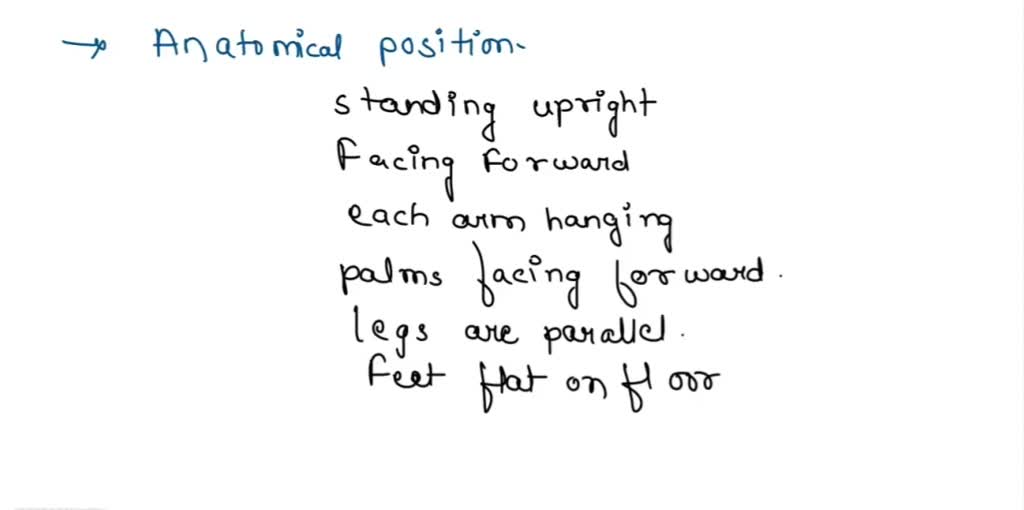 → Anatomical position.
standing upright
Facing forward
each arm hanging
palms facing forward.
legs are parallel.
Feet flat on floor